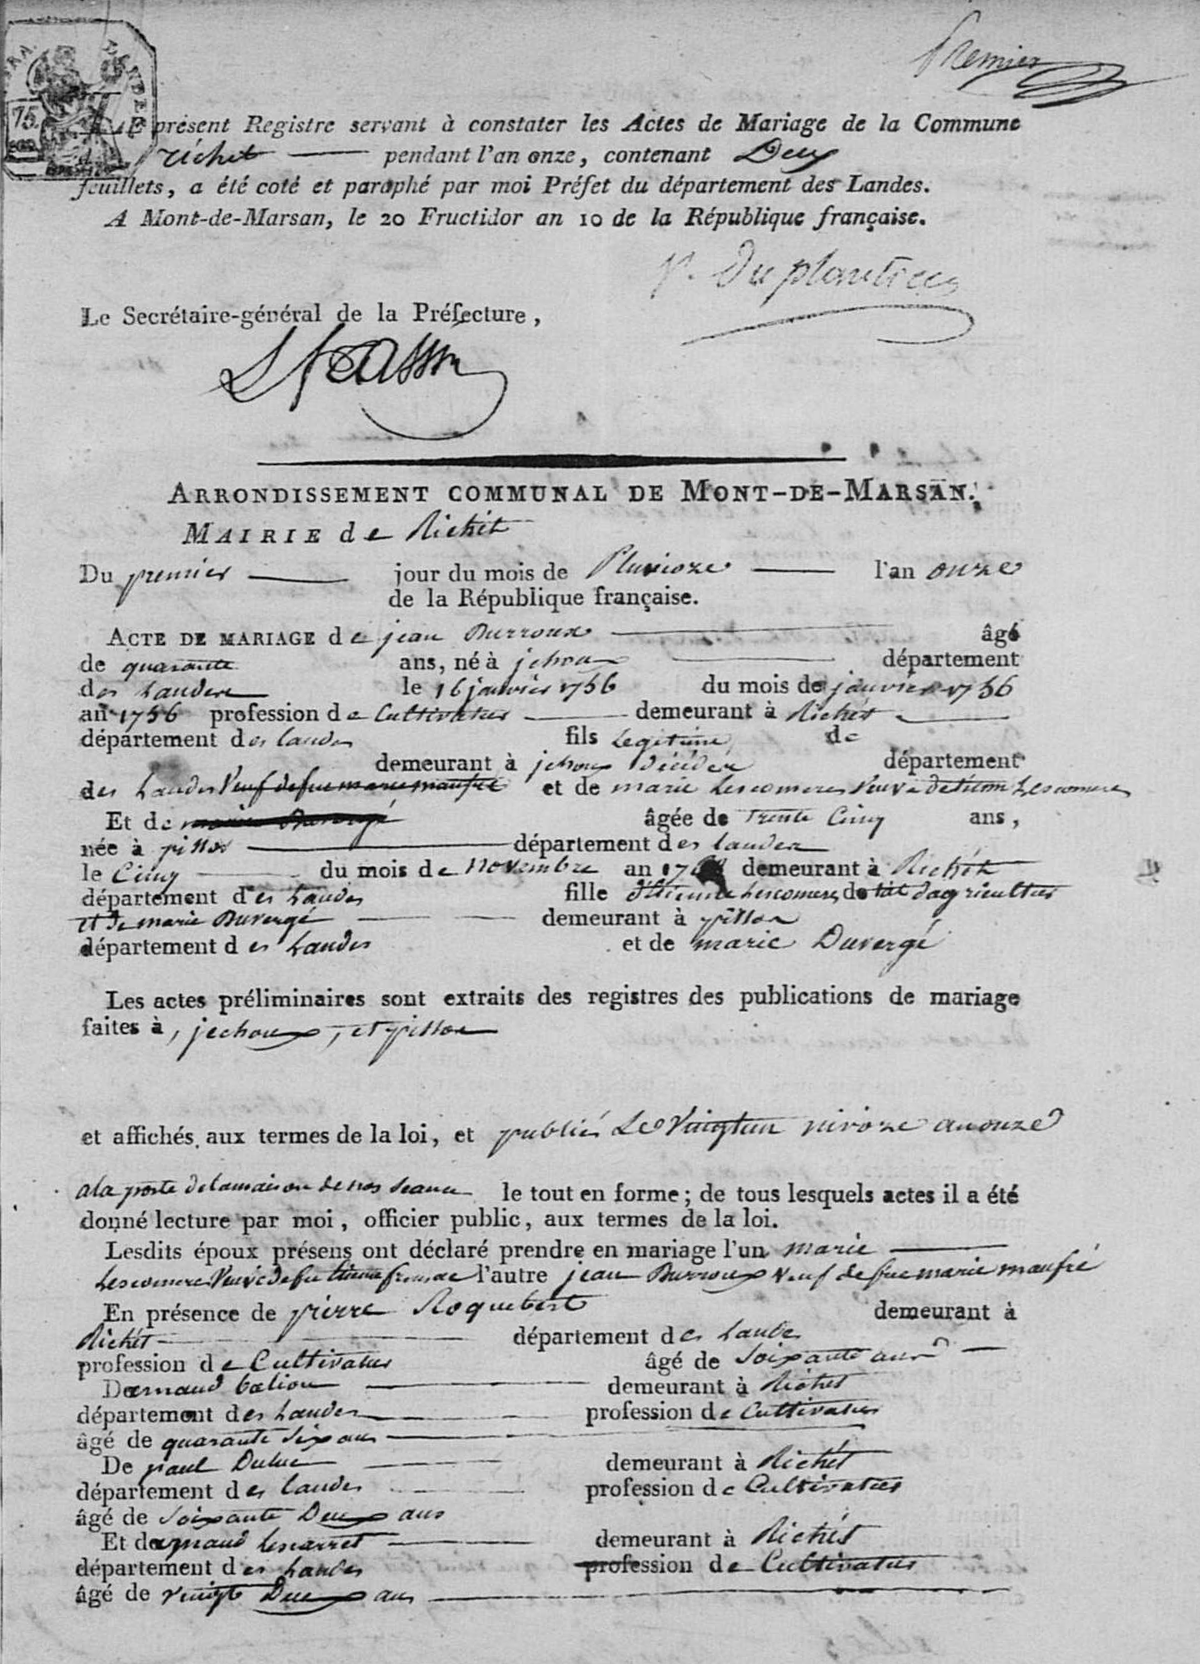 Premier
Le présent Registre servant à constater les Actes de Mariage de la Commune
d richet pendant l'an onze, contenant Deux
feuillets, a été coté et paraphé par moi Préfet du département des Landes.
A Mont-de-Marsan, le 20 Fructidor an 10 de la République française.
Le Secrétaire-général de la Préfecture,
ARRONDISSEMENT COMMUNAL DE MONT-DE-MARSAN.
MAIRIE de Richet
Du premier jour du mois de Pluvioze l'an onze
de la République française.
ACTE DE MARIAGE de jean Burroux âgé
de quarante ans, né à jchoux département
des Landes le 16 janvier 1756 du mois de janvier 1756
an 1756 profession de Cultivateur demeurant à Richet
département des landes fils Legitime de
demeurant à jchoux décédé département
des Landes Veuf de fue marie maufré et de marie Lescomere Veuve
Et de marie Duvergé âgée de trente Cinq ans,
née à pissos département des landes
le Cinq du mois de Novembre an demeurant à Richet
département des Landes fille d'Etienne Lescomere, d'agriculteur
et de marie Duvergé demeurant à pissos
département des Landes et de marie Duvergé
Les actes préliminaires sont extraits des registres des publications de mariage
faites à, jechoux, et pissos
et affichés aux termes de la loi, et publiés Le Vingtun nivoze an onze
a la porte de la maison de nos seance le tout en forme; de tous lesquels actes il a été
donné lecture par moi, officier public, aux termes de la loi.
Lesdits époux présens ont déclaré prendre en mariage l'un marie
Lescomere Veuve de fu l'autre jean Burroux Veuf de fue marie maufré
En présence de pierre Roquebert demeurant à
Richet département des Landes
profession de Cultivateur âgé de soixante ans
De arnaud balion demeurant à Richet
département des Landes profession de Cultivateur
âgé de quarante six ans
De paul Duluc demeurant à Richet
département des landes profession de Cultivateur
âgé de soixante Deux ans
Et de arnaud Lescarret demeurant à Richet
département des Landes profession de Cultivateur
âgé de vingt Deux ans